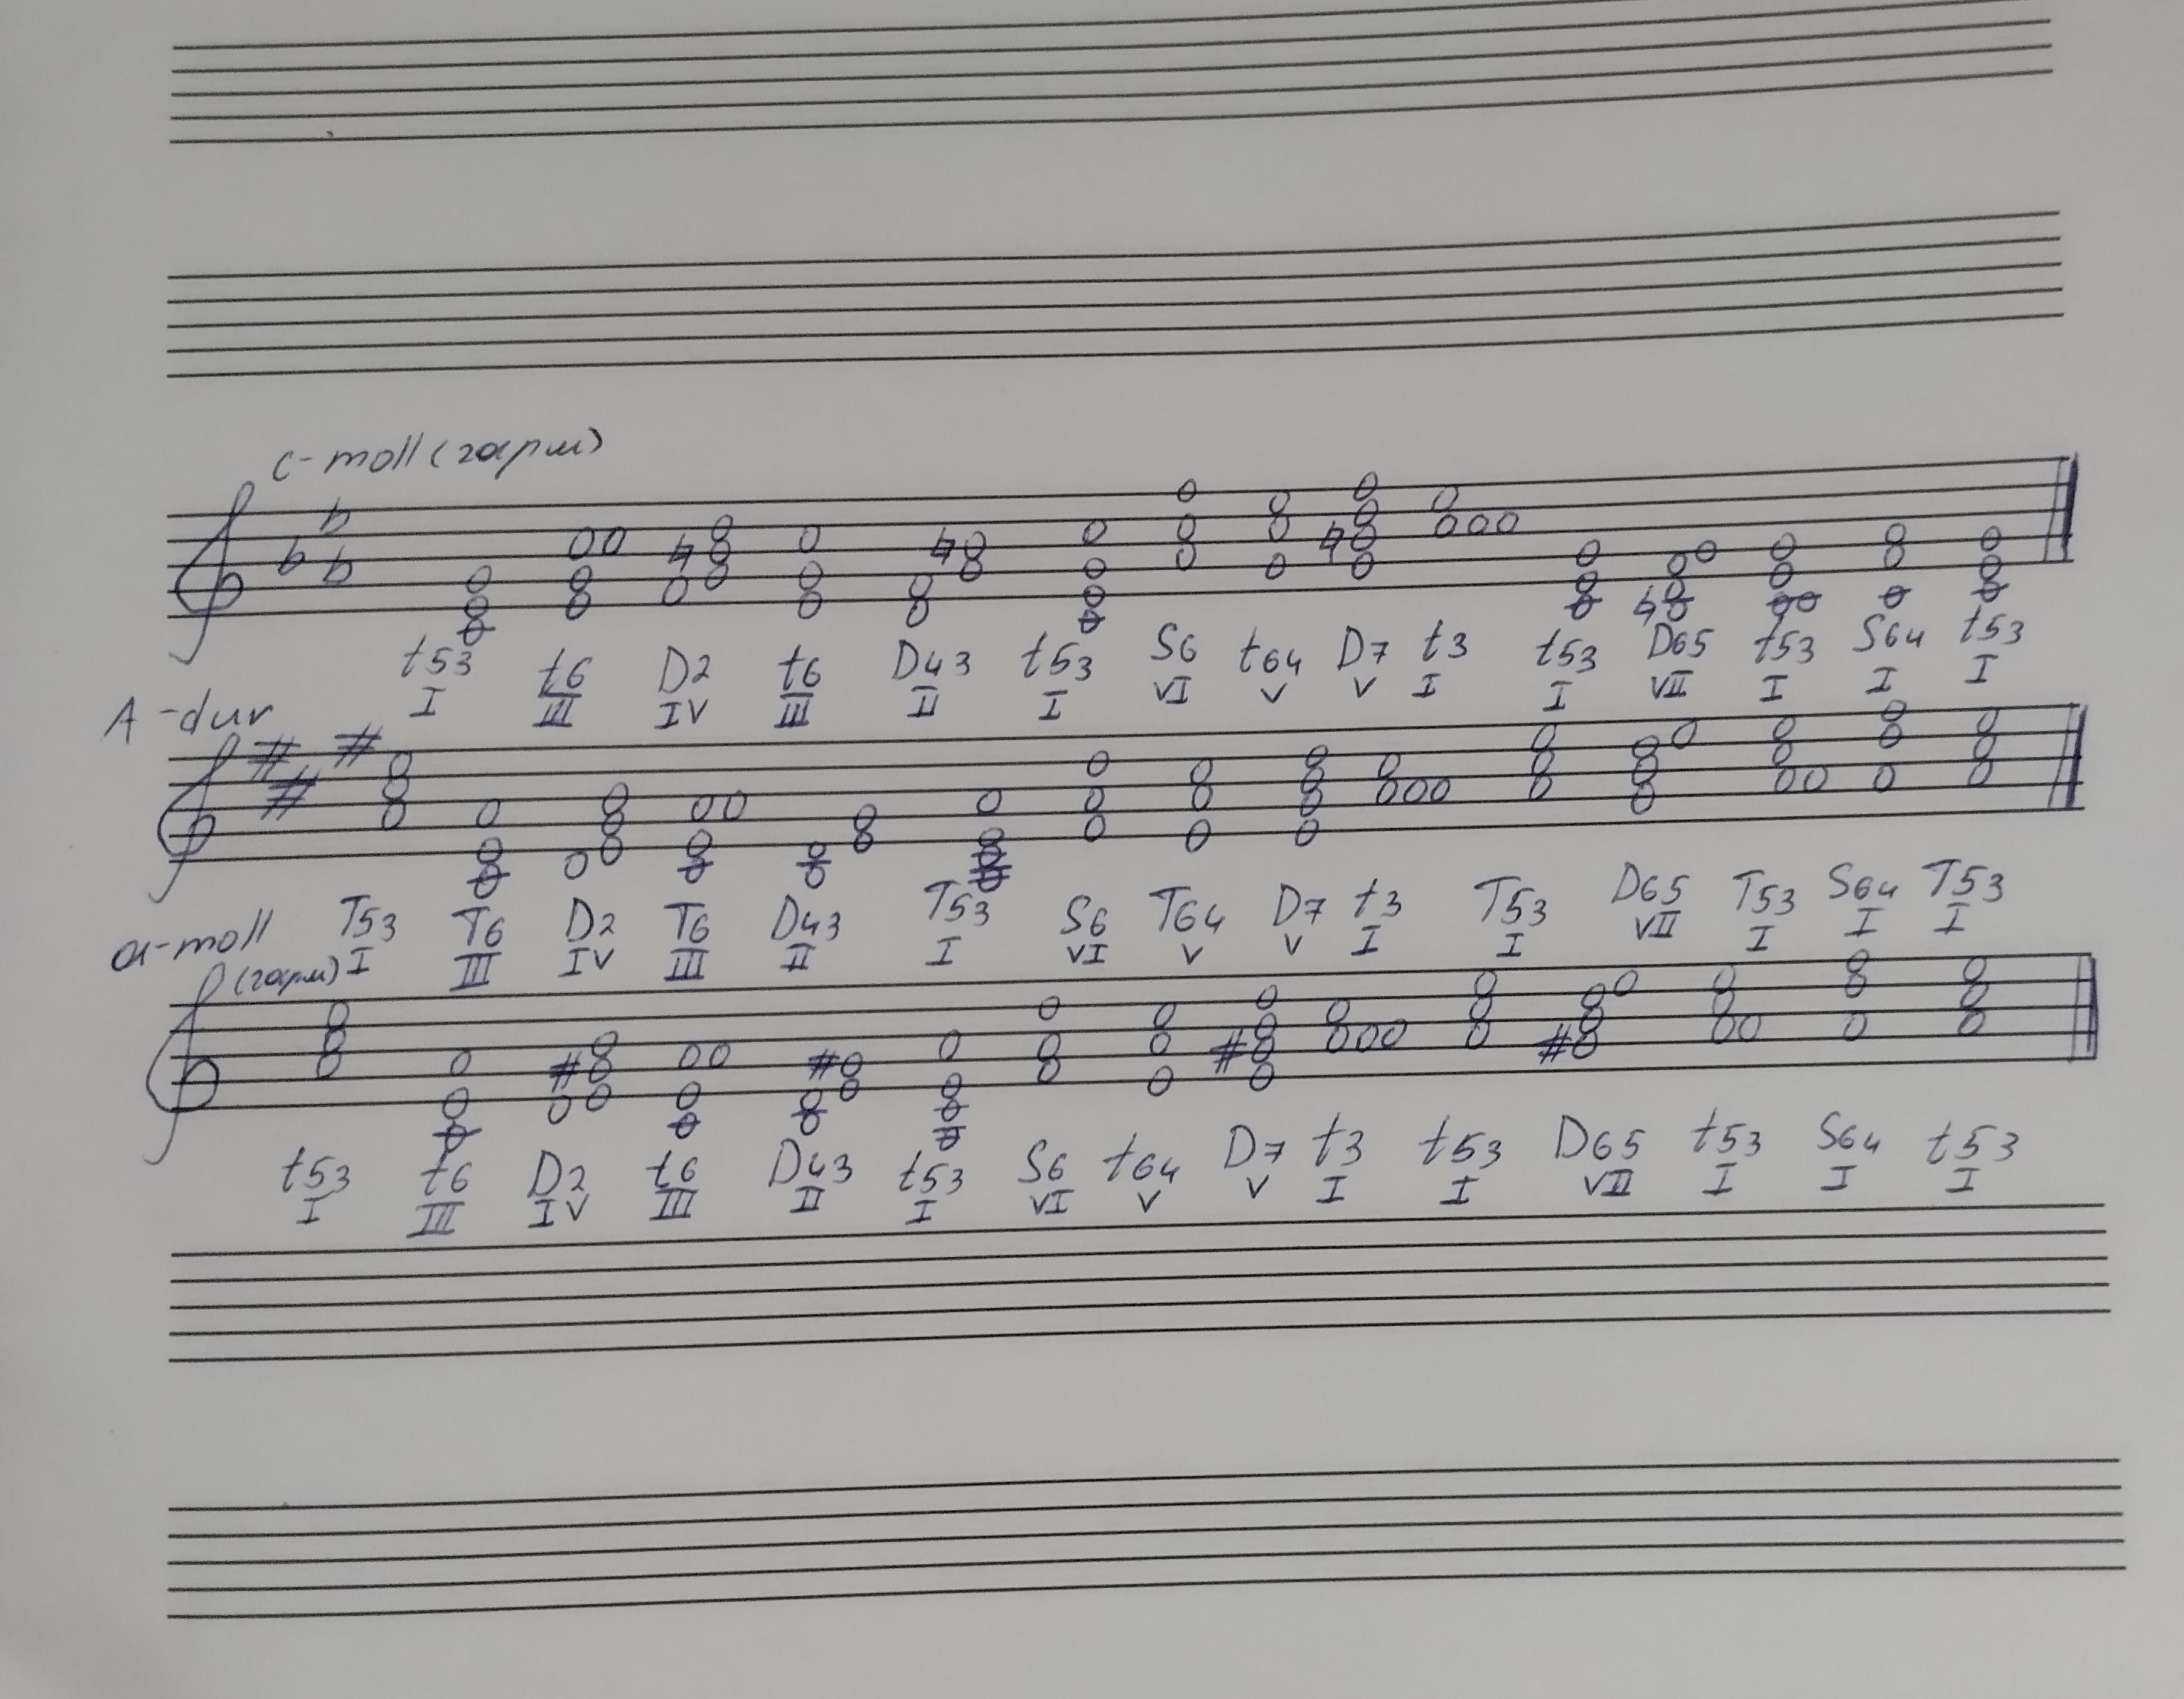 c-moll (гарм)
t53 t6 D2 t6 D43 t53 S6 t64 D7 t3 t53 D65 t53 S64 t53
I III IV III II I VI V V I I VII I I I
A-dur
T53 T6 D2 T6 D43 T53 S6 T64 D7 t3 T53 D65 T53 S64 T53
I III IV III II I VI V V I I VII I I I
a-moll
(гарм)
t53 t6 D2 t6 D43 t53 S6 t64 D7 t3 t53 D65 t53 S64 t53
I III IV III II I VI V V I I VII I I I